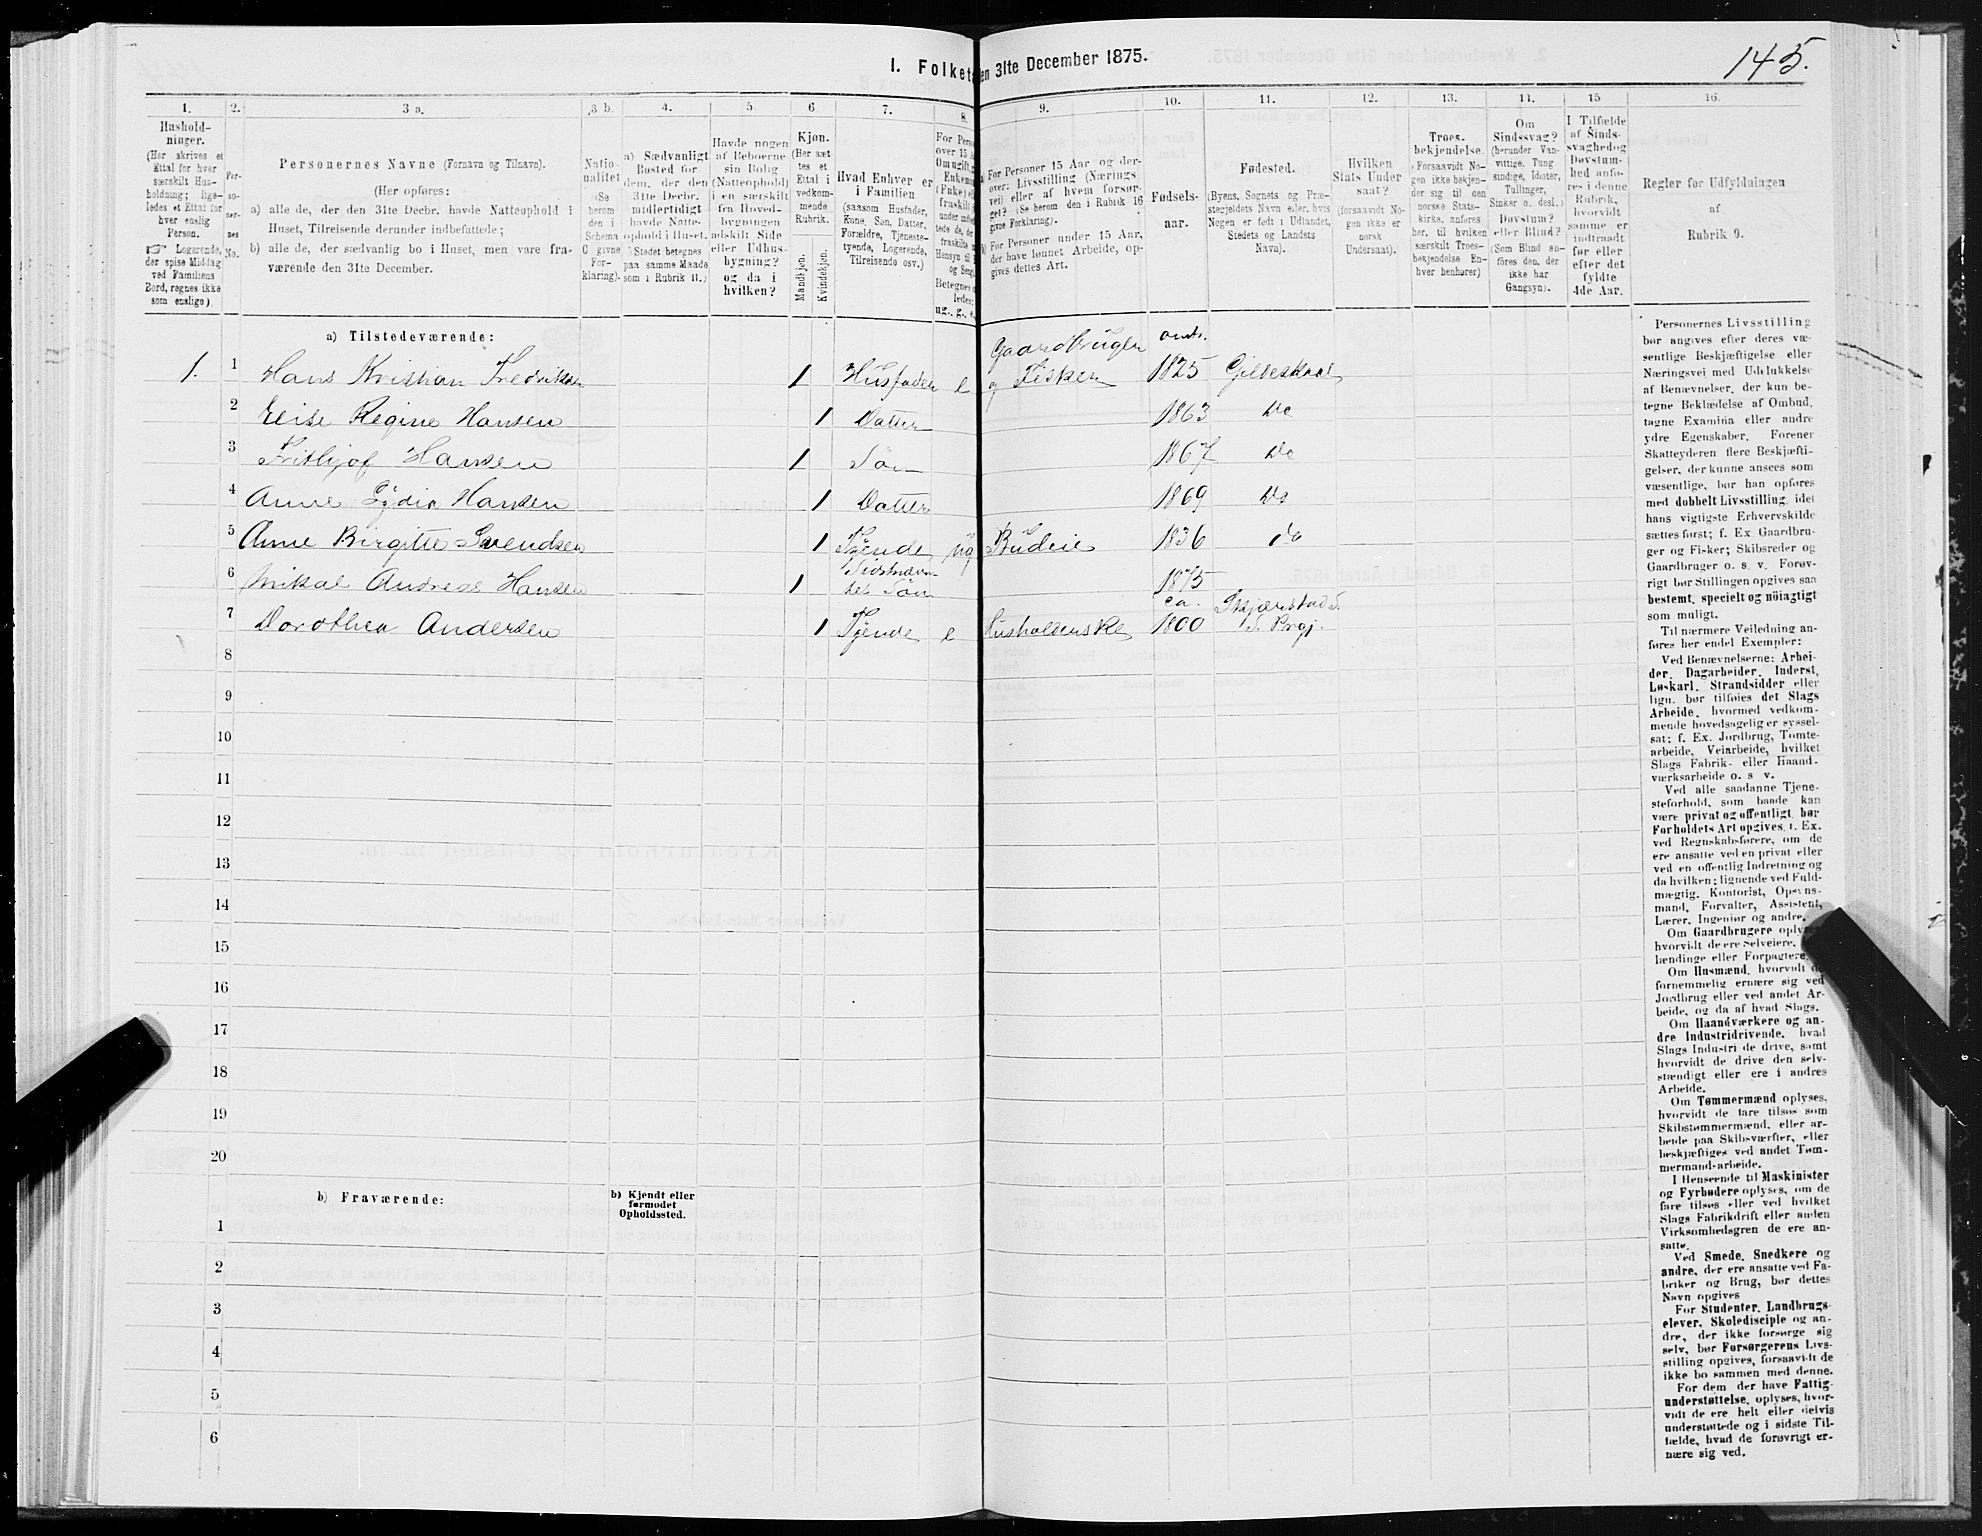 145.
I. Folket en 31te December 1875.
1. 2. 3 a. 3 b. 4. 5. 6 7. 8. 9. 10. 11. 12. 13. 14. 15 16.
Hushold-
ninger.
(Her skrives et
Ettal for hver
særskilt Hus-
holdning; lige-
ledes et Ettal for
hver enslig
Person.
☞ Logerende,
der spise Middag
ved Familiens
Bord, regnes ikke
som enslige).
Per-
so-
ner-
nes
No.
Personernes Navne (Fornavn og Tilnavn).
(Her opføres:
a) alle de, der den 31te Decbr. havde Natteophold i
Huset, Tilreisende derunder indbefattede;
b) alle de, der sædvanlig bo i Huset, men vare fra-
værende den 31te December.
Natio-
nalitet
(Se
herom
den i
Schema
C givne
For-
klaring).
a) Sædvanligt
Bosted for
dem, der den
31te Decbr.
midlertidigt
havde Natte-
ophold i Huset.
(Stedet betegnes
paa samme Maade
som i Rubrik 11.)
Havde nogen
af Beboerne
sin Bolig
(Natteophold)
i en særskilt
fra Hoved-
bygningen
adskilt Side
eller Udhus-
bygning?
og da i
hvilken?
Kjøn.
(Her sæt
tes et
Ettal i
vedkom-
mende
Rubrik.
Mandkjøn.
Kvindekjøn.
Hvad Enhver er
i Familien
(saasom Husfader,
Kone, Søn, Datter,
Forældre, Tjeneste-
tyende, Logerende,
Tilreisende osv.)
For Perso
over 15 A
Om ugift,
Enkem
(Enke) e
fraskilt
under indb
tede de,
fraskilte
Hensyn til
og Seng
Betegnes
ledes:
ug., g., e.
a) For Personer 15 Aar og der-
over: Livsstilling (Nærings
vei) eller af hvem forsør-
get? (Se herom den i Rubrik 16
givne Forklaring).
b) For Personer under 15 Aar,
der have lønnet Arbeide, op-
gives dettes Art.
Fødsels-
aar.
Fødested.
(Byens, Sognets og Præ-
stegjeldets Navn eller, hvis
Nogen er født i Udlandet,
Stedets og Landets
Navn).
Hvilken
Stats Under
saat?
(forsaavidt No-
gen ikke er
norsk
Undersaat).
Troes-
bekjendelse.
(Forsaavidt No-
gen ikke bekjen-
der sig til den
norske Stats-
kirke, anføres
her, til hvilken
særskilt Troes-
bekjendelse En-
hver henhører)
Om
Sindssvag?
(herunder Van-
vittige, Tung
sindige, Idioter,
Tullinger,
Sinker o. desl.)
Døvstum?
eller Blind?
(Som Blind an-
føres den, der
ikke har
Gangsyn).
I Tilfælde
af Sinds-
svaghed og
Døvstum-
hed anfø-
res i denne
Rubrik,
hvorvidt
samme er
indtraadt
før eller
efter det
fyldte
4de Aar.
Regler for Udfyldningen
af
Rubrik 9.
a) Tilstedeværende:
1. 1 Hans Kristian Fredriksen 1 Husfader e Gaardbruger og Fisker omtr. 1825 Gildeskaal
2 Elise Regine Hansen 1 Datter 1863 Do
3 Frithjof Hansen 1 Søn 1867 Do
4 Anne Lydia Hansen 1 Datter 1869 Do
5 Anne Birgitte Svendsen 1 Tjende ug Budeie 1836 do
6 Mikal Andreas Hansen 1 Sidstnævn tes Søn 1875
7 Dorothea Andersen 1 Tjende e Husholderske ca. 1800 Skjærstad S. S. Prgj.
8
9
10
11
12
13
14
15
16
17
18
19
20
b) Fraværende:
b) Kjendt eller
formodet
Opholdssted.
1
2
3
4
5
6
Personernes Livsstilling
bør angives efter deres væ-
sentlige Beskjæftigelse eller
Næringsvei med Udelukkelse
af Benævnelser, der kun be-
tegne Beklædelse af Ombud,
tagne Examina eller andre
ydre Egenskaber. Forener
Skatteyderen flere Beskjæfti-
gelser, der kunne ansees som
væsentlige, bør han opføres
med dobbelt Livsstilling, idet
hans vigtigste Erhvervskilde
sættes først; f. Ex. Gaardbru-
ger og Fisker; Skibsreder og
Gaardbruger o. s. v. Forøv-
rigt bør Stillingen opgives saa
bestemt, specielt og nøiagtigt
som muligt.
Til nærmere Veiledning an-
føres her endel Exempler:
Ved Benævnelserne: Arbei-
der, Dagarbeider, Inderst,
Løskarl, Strandsidder eller
lign. bør tilføies det Slags
Arbeide, hvormed vedkom-
mende hovedsagelig er syssel-
sat; f. Ex. Jordbrug, Tomte-
arbeide, Veiarbeide, hvilket
Slags Fabrik- eller Haand-
værksarbeide o. s v.
Ved alle saadanne Tjene-
steforhold, som baade kan
være privat og offentligt, bør
Forholdets Art opgives, t. Ex.
ved Regnskabsførere, om de
ere ansatte ved en privat eller
ved en offentlig Indretning og
da hvilken; lignende ved Fuld-
mægtig, Kontorist, Opsyns-
mand, Forvalter, Assistent,
Lærer, Ingeniør og andre.
Om Gaardbrugere oplyses,
hvorvidt de ere Selveiere,
lændinge eller Forpagtere.
Om Husmænd, hvorvidt de
fornemmelig ernære sig ved
Jordbrug eller ved andet Ar-
beide, og da af hvad Slags.
Om Haandværkere og an-
dre Industridrivende, hvad
Slags Industri de drive, samt
hvorvidt de drive den selv-
stændigt eller ere i andres
Arbeide.
Om Tømmermænd oplyses,
hvorvidt de fare tilsøs som
Skibstømmermænd, eller ar-
beide paa Skibsværfter, eller
beskjæftiges ved andet Tøm-
mermand-arbeide.
I Henseende til Maskinister
og Fyrbødere oplyses, om de
fare tilsøs eller ved hvilket
Slags Fabrikdrift eller anden
Virksomhedsgren de ere an-
satte.
Ved Smede, Snedkere og
andre, der ere ansatte ved Fa-
briker og Brug, bør dettes
Navn opgives
For Studenter, Landbrugs-
elever, Skoledisciple og an-
dre, der ikke forsørge sig
selv, bør Forsørgerens Livs-
stilling opgives, forsaavidt de
ikke bo sammen med denne.
For dem, der have Fattig-
understøttelse, oplyses, hvor-
vidt de ere helt eller delvis
understøttede og i sidste Til-
fælde, hvad de forøvrigt er-
nære sig ved.